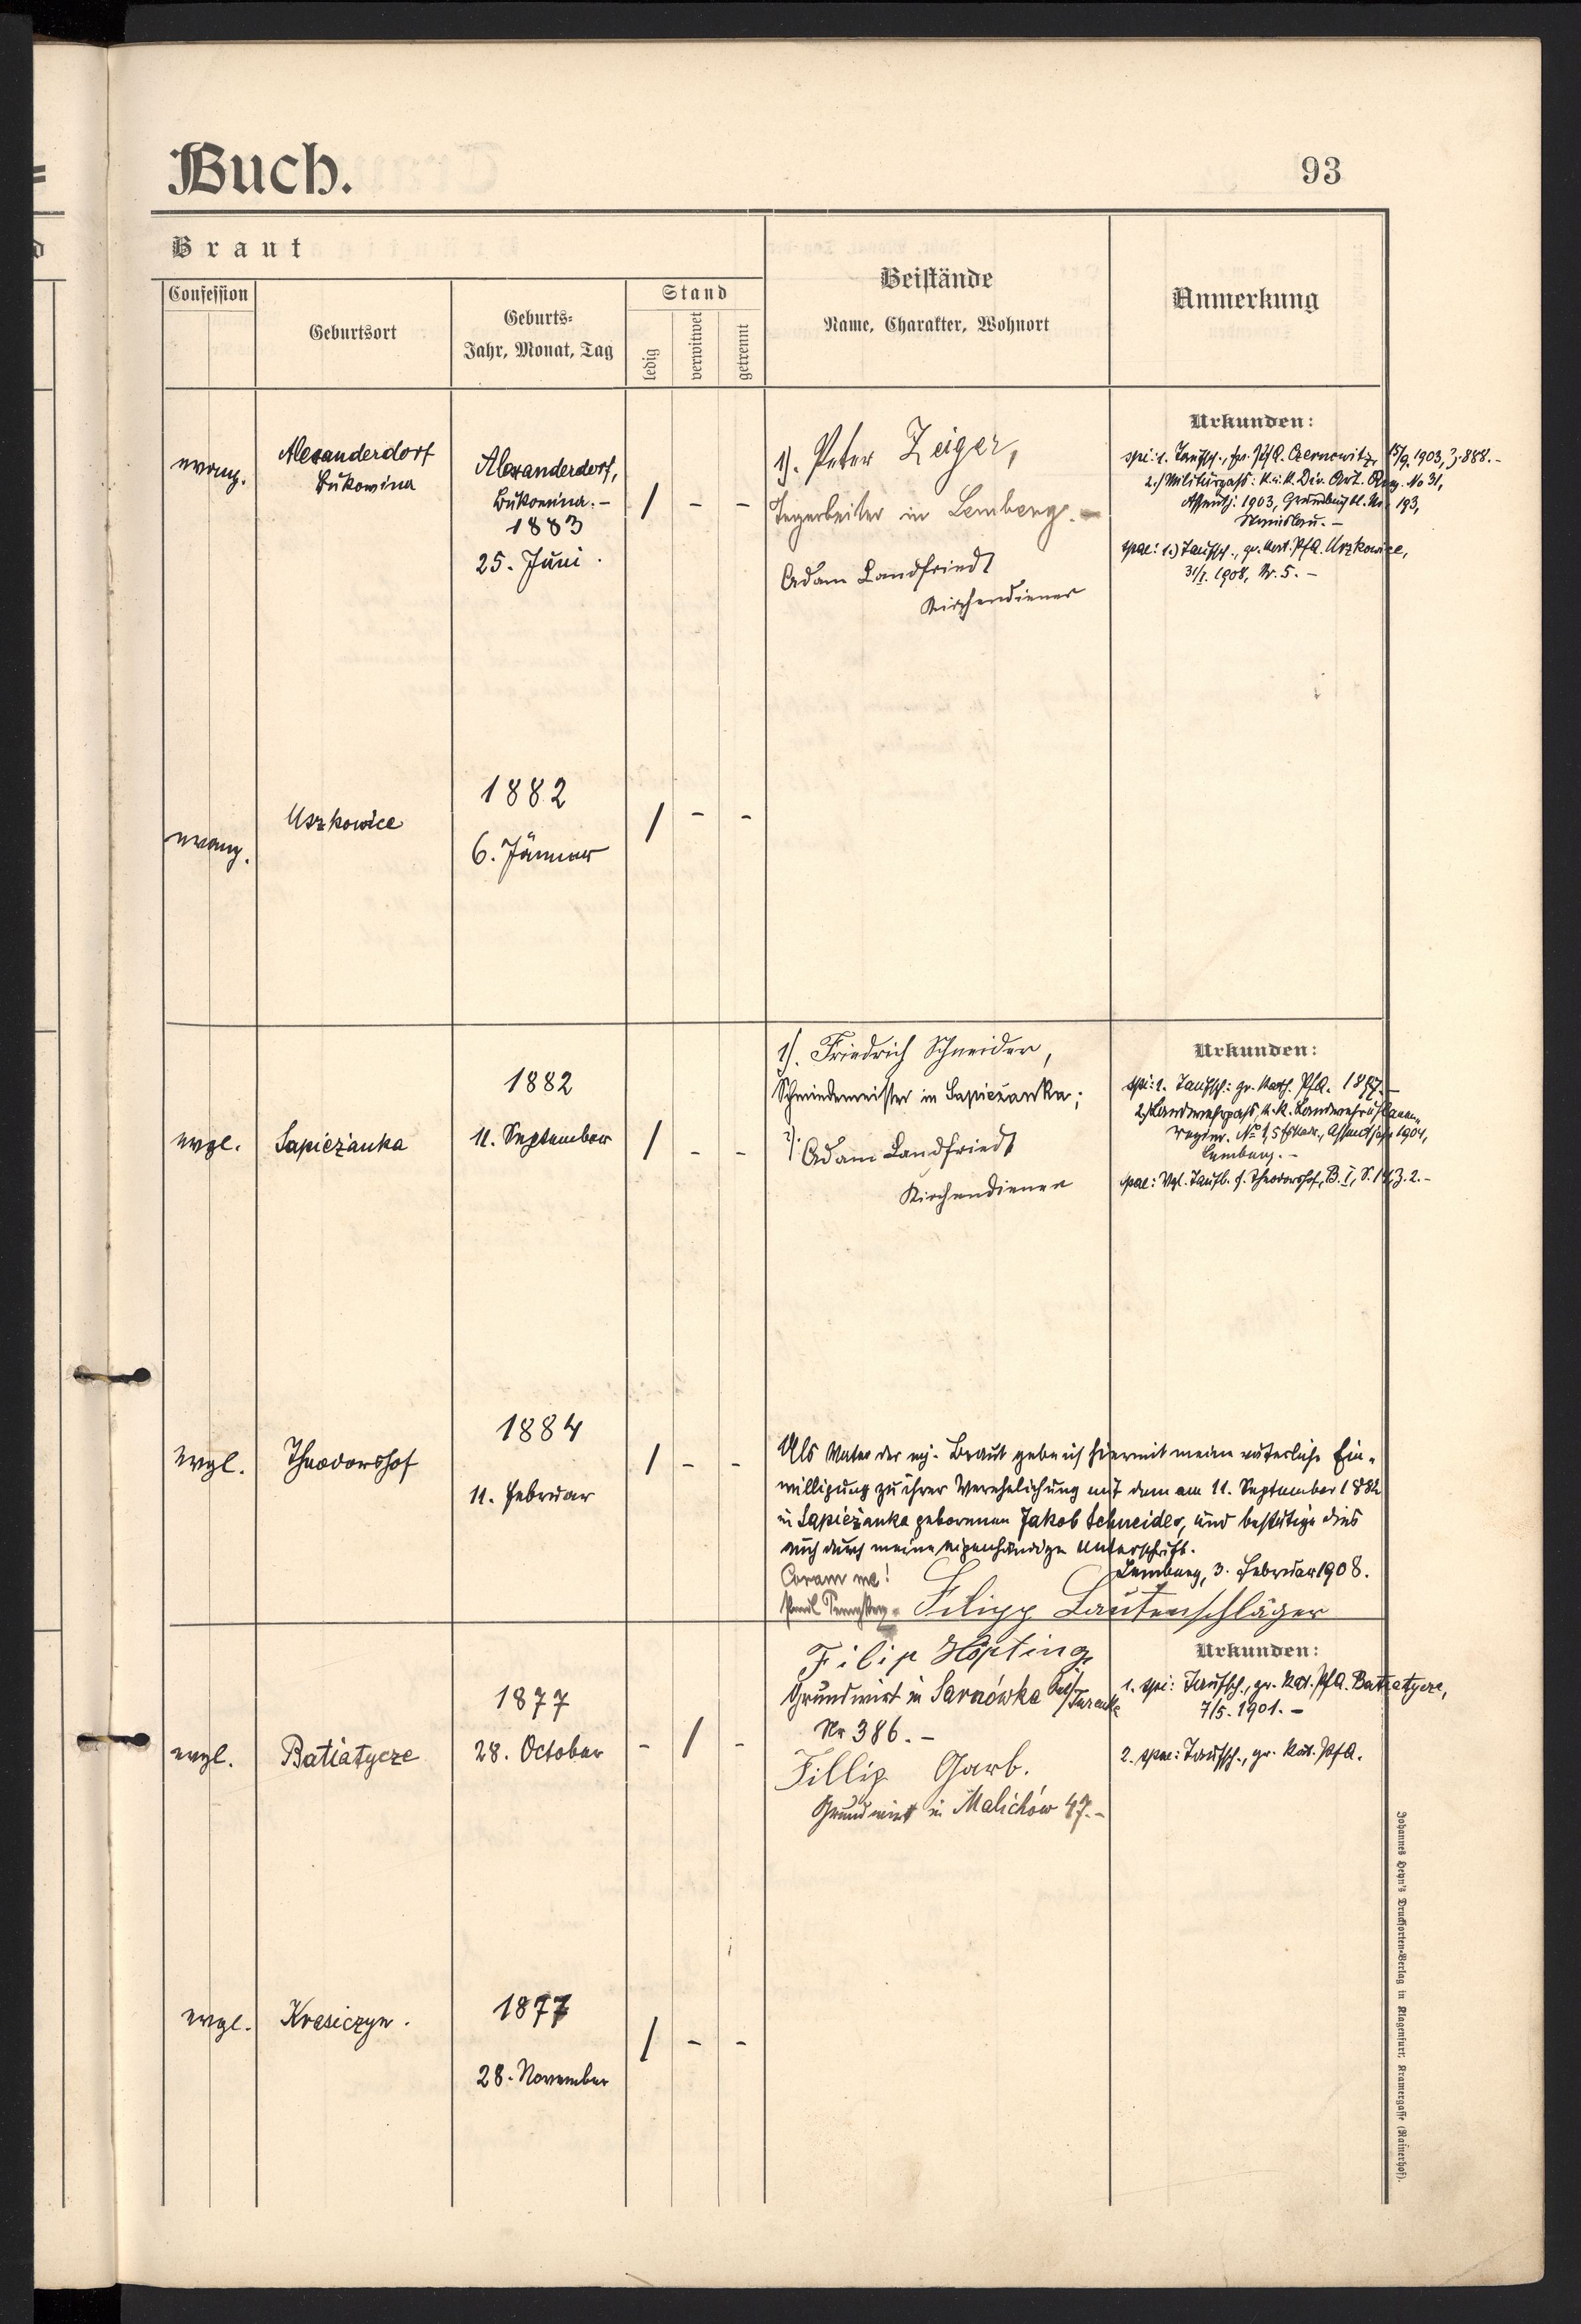 Buch.
93
Braut
Confession
Geburtsort
Geburts-
Jahr, Monat, Tag
Stand
ledig
verwitwet
getrennt
Beistände
Name, Charakter, Wohnort
Anmerkung
evang.
Alexanderdorf
Bukowina
Alexanderdorf,
Bukowina. –
1883
25. Juni.
/ - -
1). Peter Zeiger,
Tagarbeiter in Lemberg. –
Adam Landfriedt
Kirchendiener
Urkunden:
spi: 1. Taufsch., ev. PfA. Czernowitz, 15/9. 1903, Z. 888. –
2.) Militärpass: k. u. k. Div. Art. Reg. No 31,
Assentj. 1903, Grundbuchbl. Nr. 193,
Stanislau. –
spae: 1.) Taufsch., gr. kat. PfA. Uszkowice,
31/1. 1908, Nr. 5. –
evang.
Uszkowice
1882
6. Jänner
/ - -
evgl.
Sapieżanka
1882
11. September
/ - -
1). Friedrich Schneider,
Schmiedemeister in Sapieżanka;
2). Adam Landfriedt
Kirchendiener
Urkunden:
spi: 1. Taufsch: gr. kath. PfA. 1897. –
2.) Landwehrpass, k. k. Landwehrulanen-
regim. No 1, 5 Eskad., Assentjahr 1904,
Lemberg. –
spae: Vgl. Taufb. f. Theodorshof, B. I, S. 14, Z. 2. –
evgl.
Theodorshof
1884
11. Februar
/ - -
Als Vater der mj. Braut gebe ich hiermit meine väterliche Ein-
willigung zu ihrer Verehelichung mit dem am 11. September 1882
in Sapieżanka geborenen Jakob Schneider, und bestätige dies
auch durch meine eigenhändige Unterschrift.
Lemberg, 3. Februar 1908.
Coram me!
Filipp Lautenschläger
evgl.
Batiatycze
1877
28. October
- / -
Filip Höpting
Grundwirt in Sarnówka bei
Nr 386. –
Fillip Garb.
Grundwirt in Malichów 47. –
Urkunden:
1. spi: Taufsch., gr. kat. PfA. Batiatycze,
7/5. 1901. –
2. spae: Taufsch., gr. kat. PfA.
evgl.
Krasiczyn.
1877
28. November
/ - -
Johannes Heyn's Drucksorten-Verlag in Klagenfurt, Kramergasse (Rainerhof).